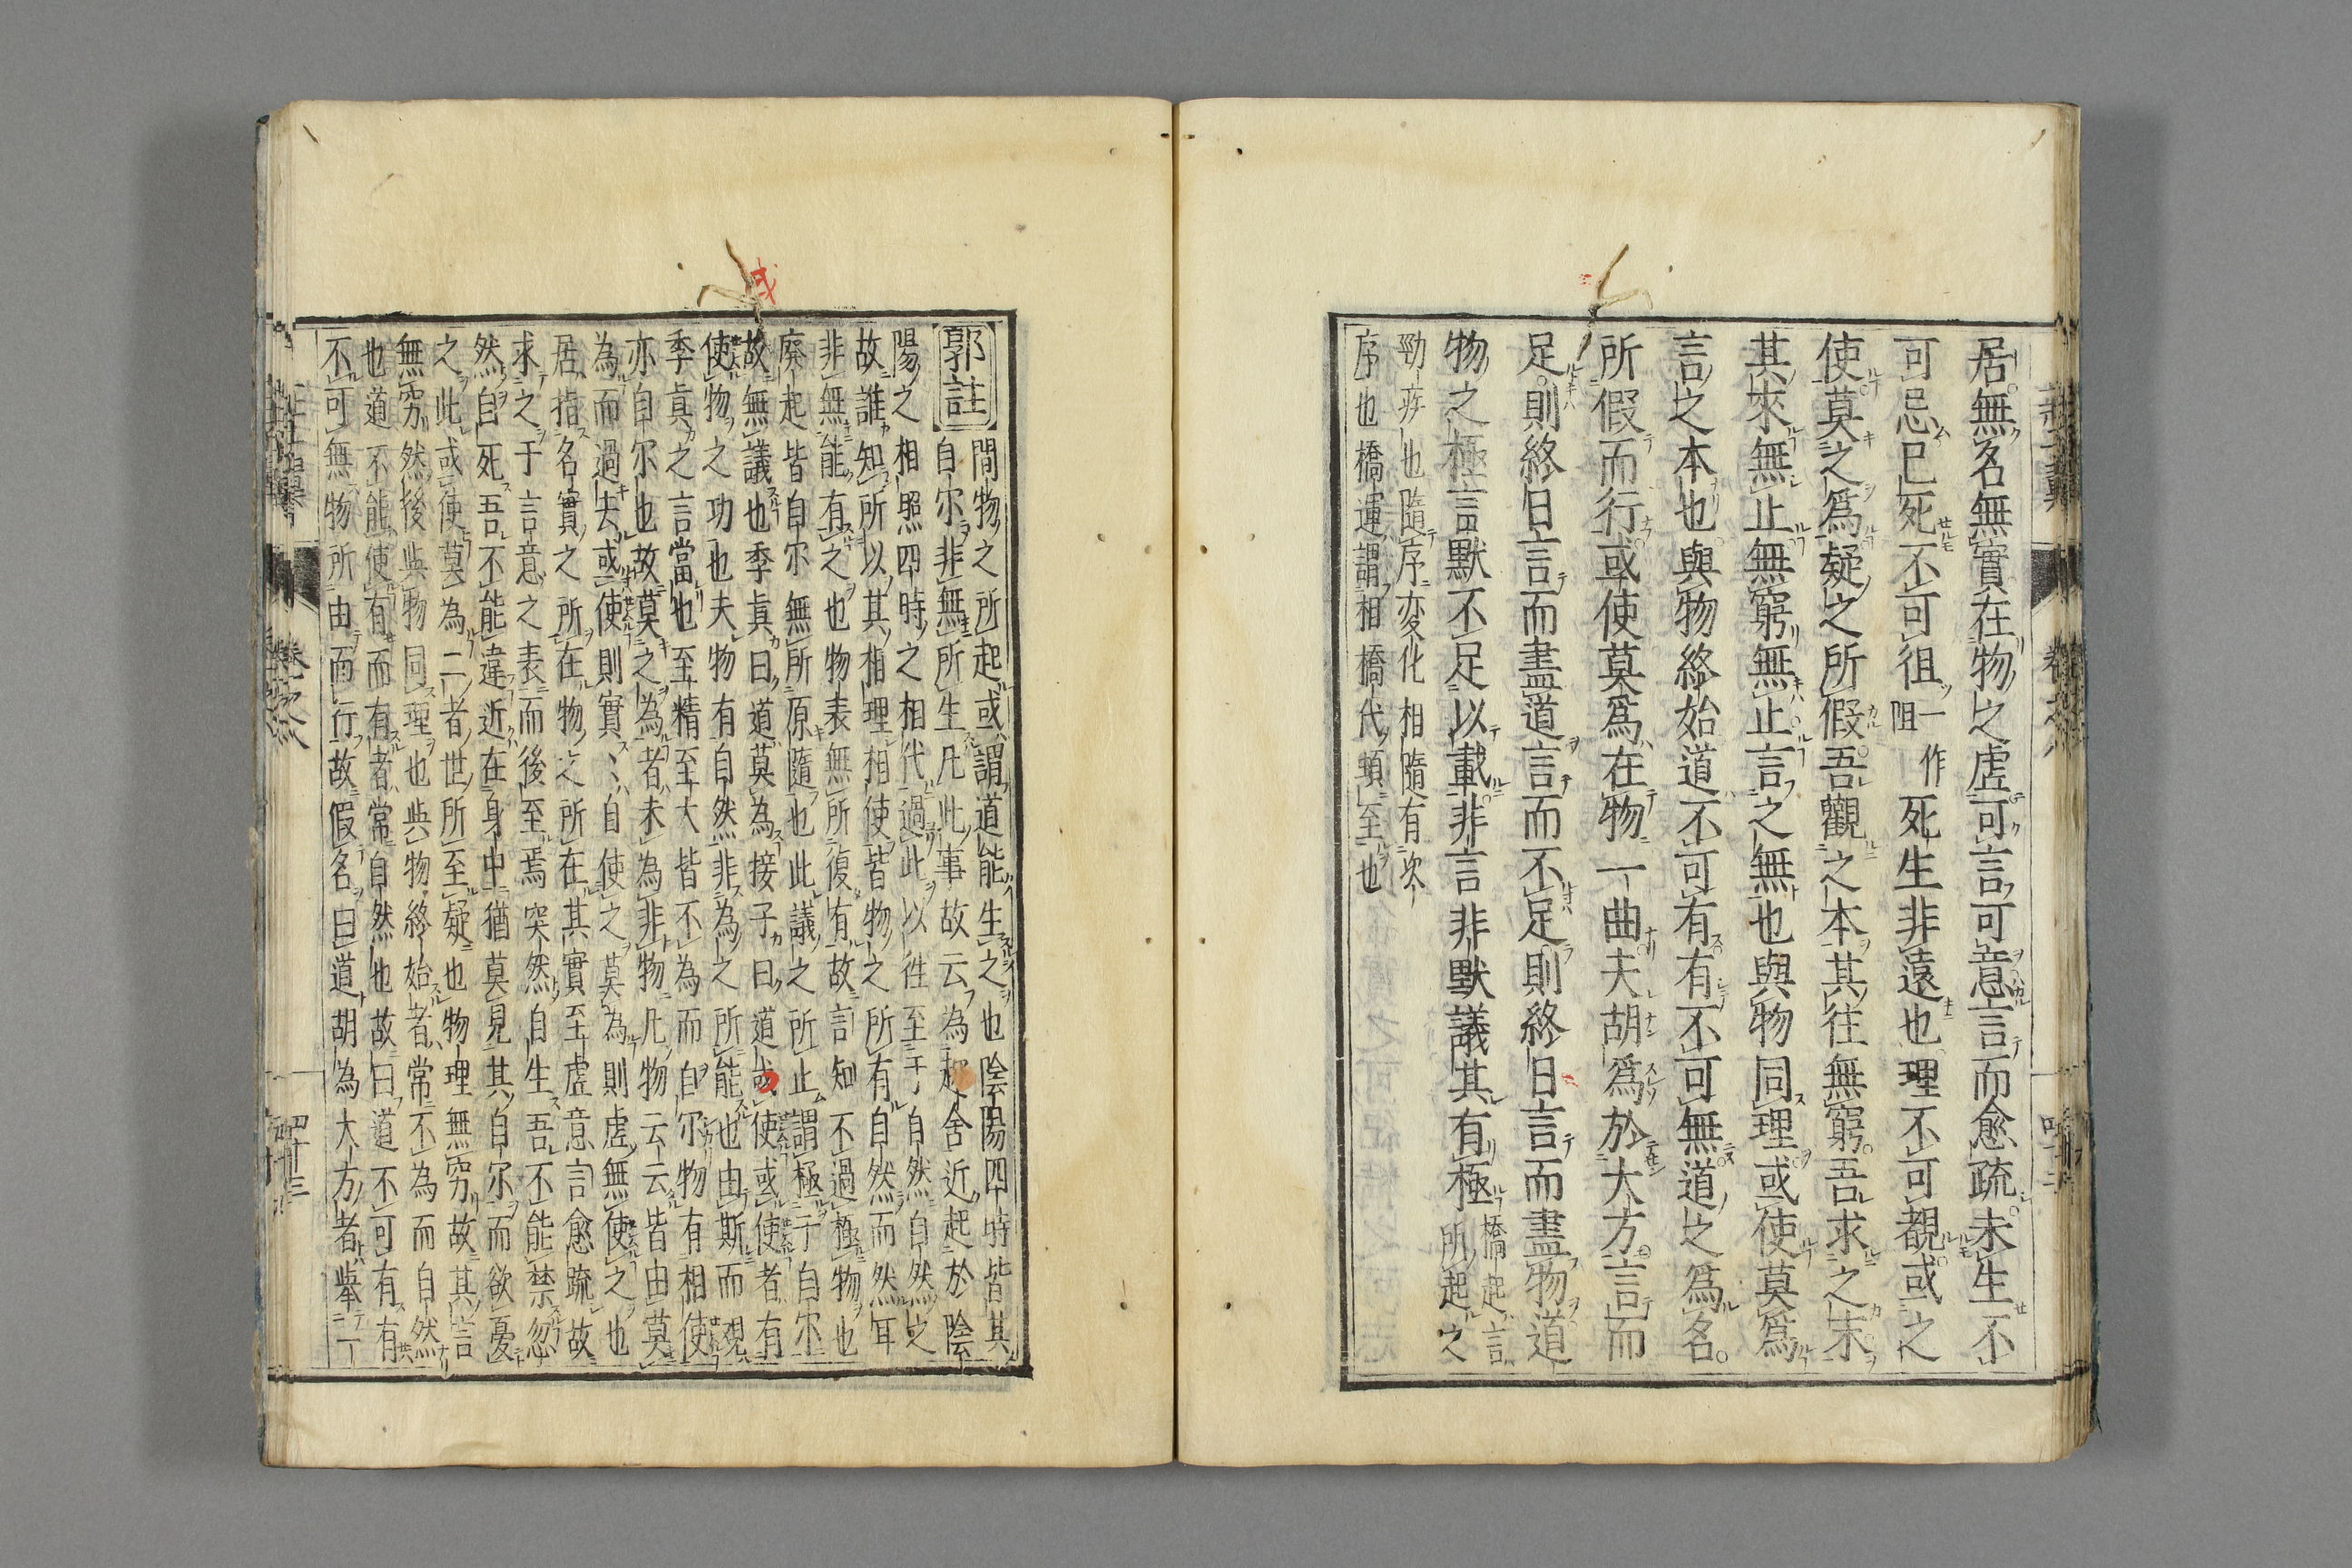 居無名無實在物之虛可言可意言而愈疏未生不
可忌已死不可徂一作阻死生非遠也理不可覩或之
使莫之爲疑之所假吾觀之本其往無窮吾求之末
其來無止無窮無止言之無也與物同理或使莫爲
言之本也與物終始道不可有有不可無道之爲名
所假而行或使莫爲在物一曲夫胡爲於大方言而
足則終日言而盡道言而不足則終日言而盡物道
物之極言默不足以載非言非默議其有極橋起言所起之
勁疾也隨序変化相隨有次
序也橋運謂相橋代頓至也
郭註
間物之所起或謂道能生之也陰陽四時皆其
自尔非無所生凡此事故云為起舍近起於陰
陽之相照四時之相代過此以徃至于自然自然之
故誰知所以其相理相使皆物之所有自然而然耳
非無能有之也物表無所復有故言知不過極物也
廃起皆自尔無所原隨也此議之所止謂極于自尔
故無議也季真曰道莫為接子曰道或使或使者有
使物之功也夫物有自然非為之所能也由斯而覌
季真之言當也至精至大皆不為而自尔物有相使
亦自尔也故莫之為者未為非物凡物云云皆由莫
為而過去或使則實〻自使之莫為則虛無使之也
居指名實之所在物之所在其實至虛意言愈疏故
求之于言意之表而後至焉突然自生吾不能禁忽
然自死吾不能違近在身中猶莫見其自尔而欲憂
之此或使莫為二者世所至疑也物理無窮故其言
無窮然後與物同理也與物終始者常不為而自然
也道不能使有而有者常自然也故曰道不可有有
不可無物所由而行故假名曰道胡為大方者舉一
四十三
或